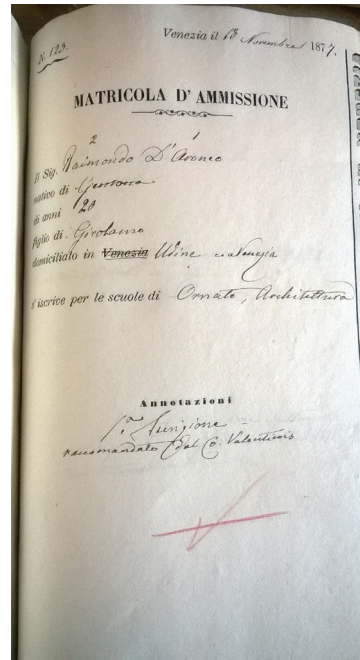 N. 123.
Venezia il 13 Novembre 1877.
MATRICOLA D' AMMISSIONE
2 1
Il Sig. Raimondo D'Aronco
nativo di Gemona
di anni 20
figlio di Girolamo
domiciliato in Venezia Udine e Venezia
s' iscrive per le scuole di Ornato, Architettura
Annotazioni
1.a Iscrizione
raccomandato dal Co.